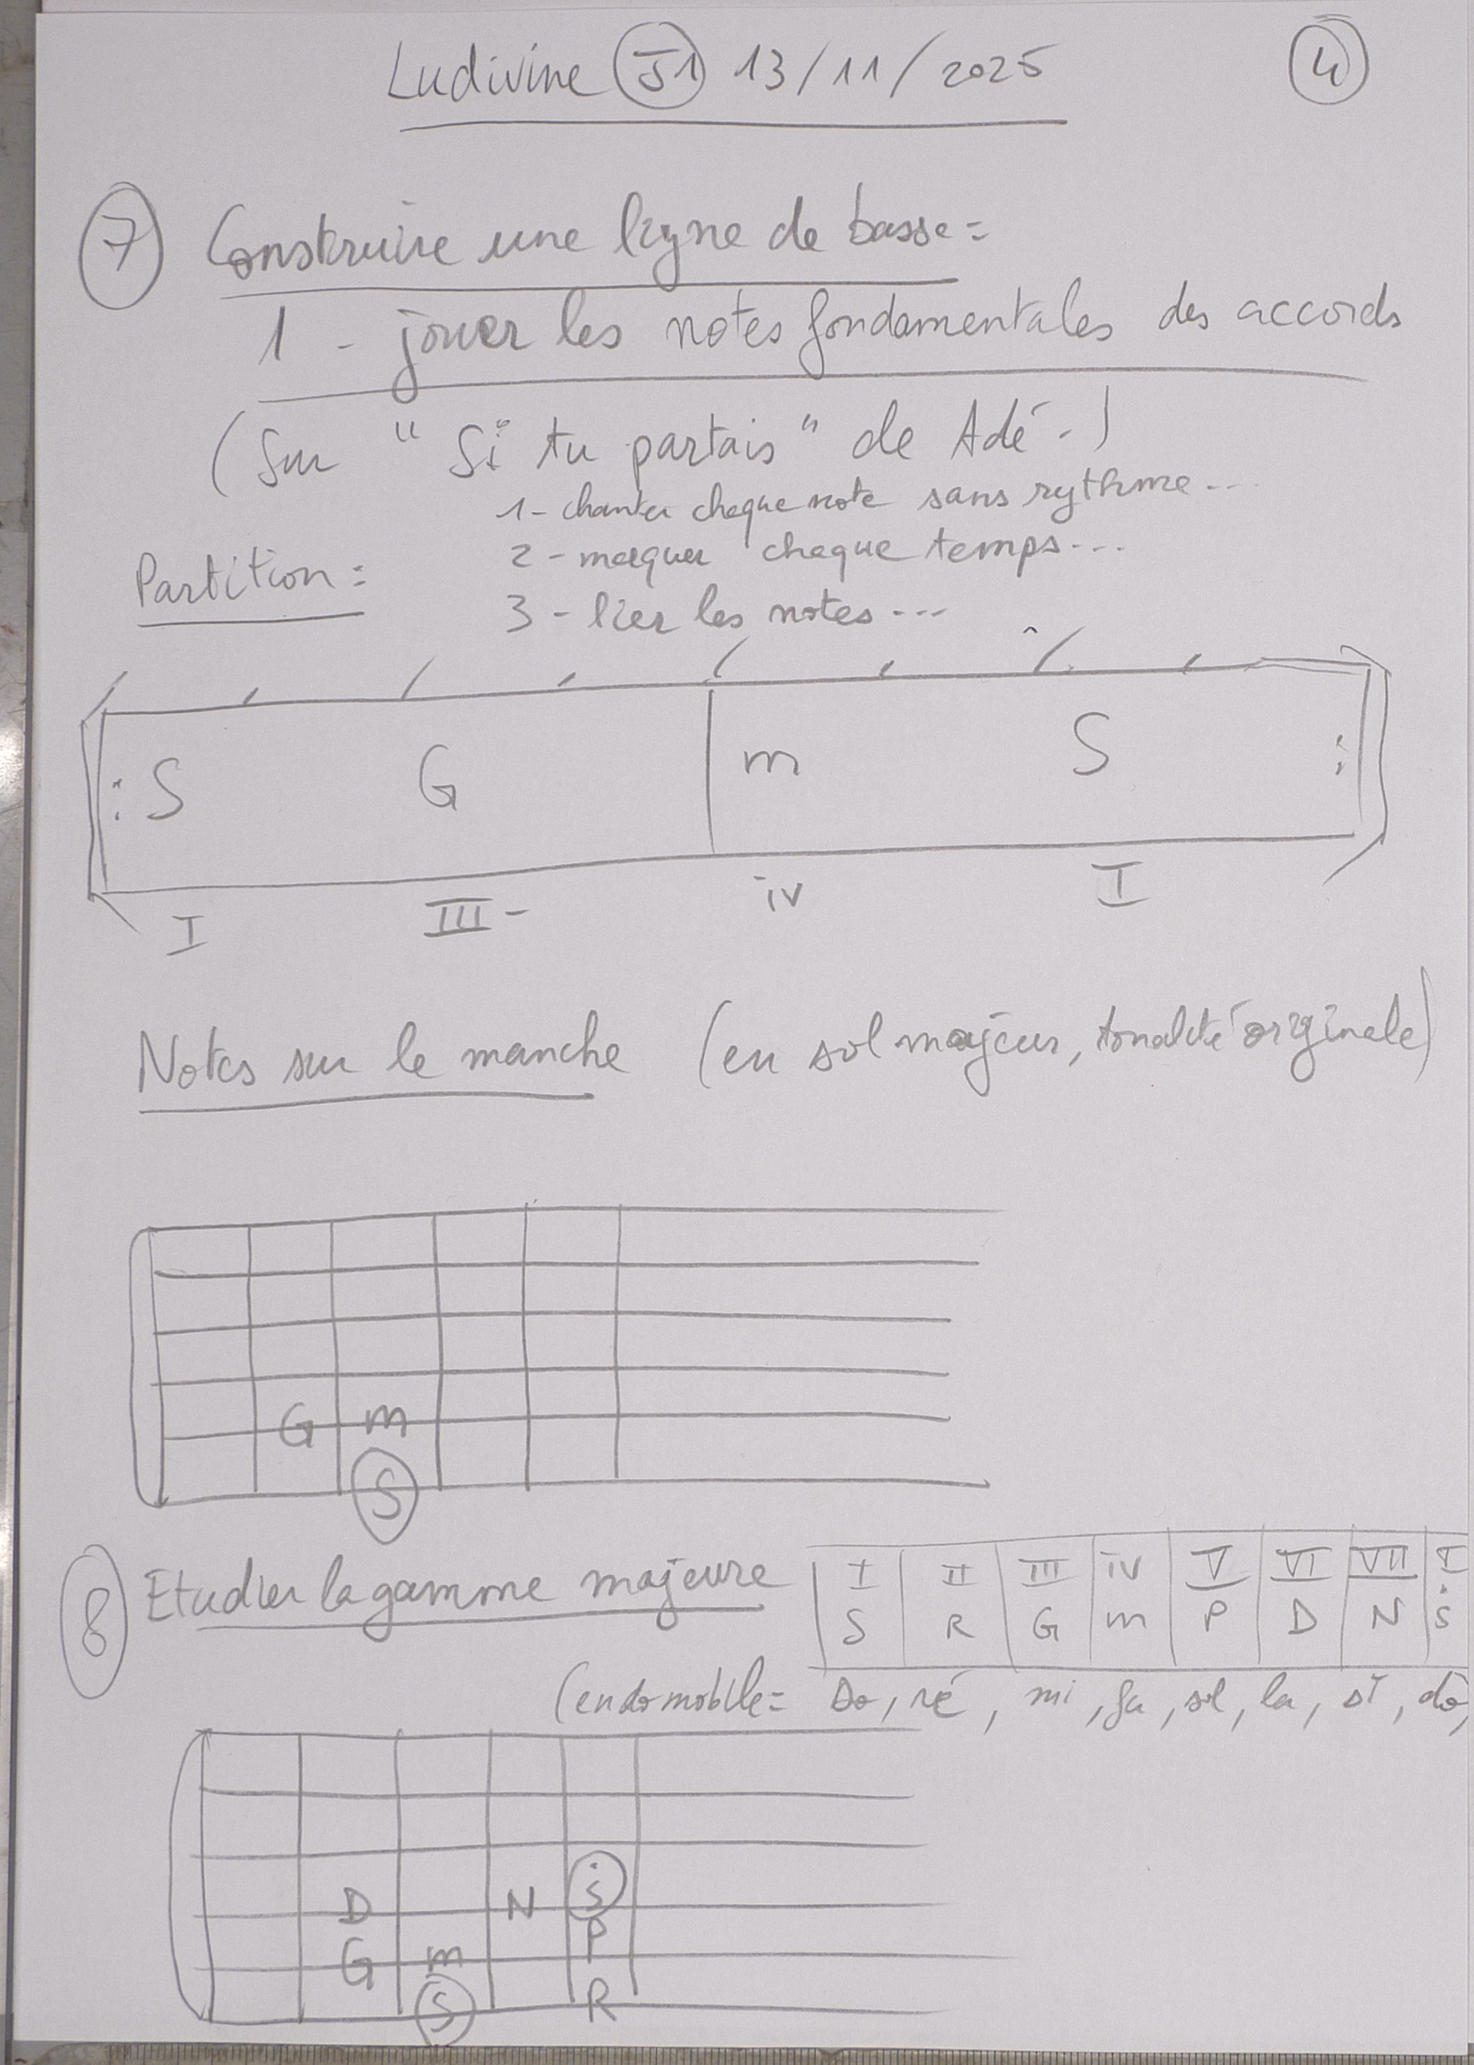 Ludivine J1 13/11/2025 4
7 Construire une ligne de basse =
1 - jouer les notes fondamentales des accords
(Sur " Si tu partais " de Adé - )
1- chanter chaque note sans rythme ...
2 - marquer chaque temps ...
Partition :
3 - lier les notes ...
: S G m S :
I III - iv I
Notes sur le manche (en sol majeur, tonalité originale)
G m
S
8 Etudier la gamme majeure
I II III iv V VI VII I
S R G m P D N Ṡ
(en do mobile = Do, ré, mi, fa, sol, la, si, do,
D N Ṡ
G m P
S R